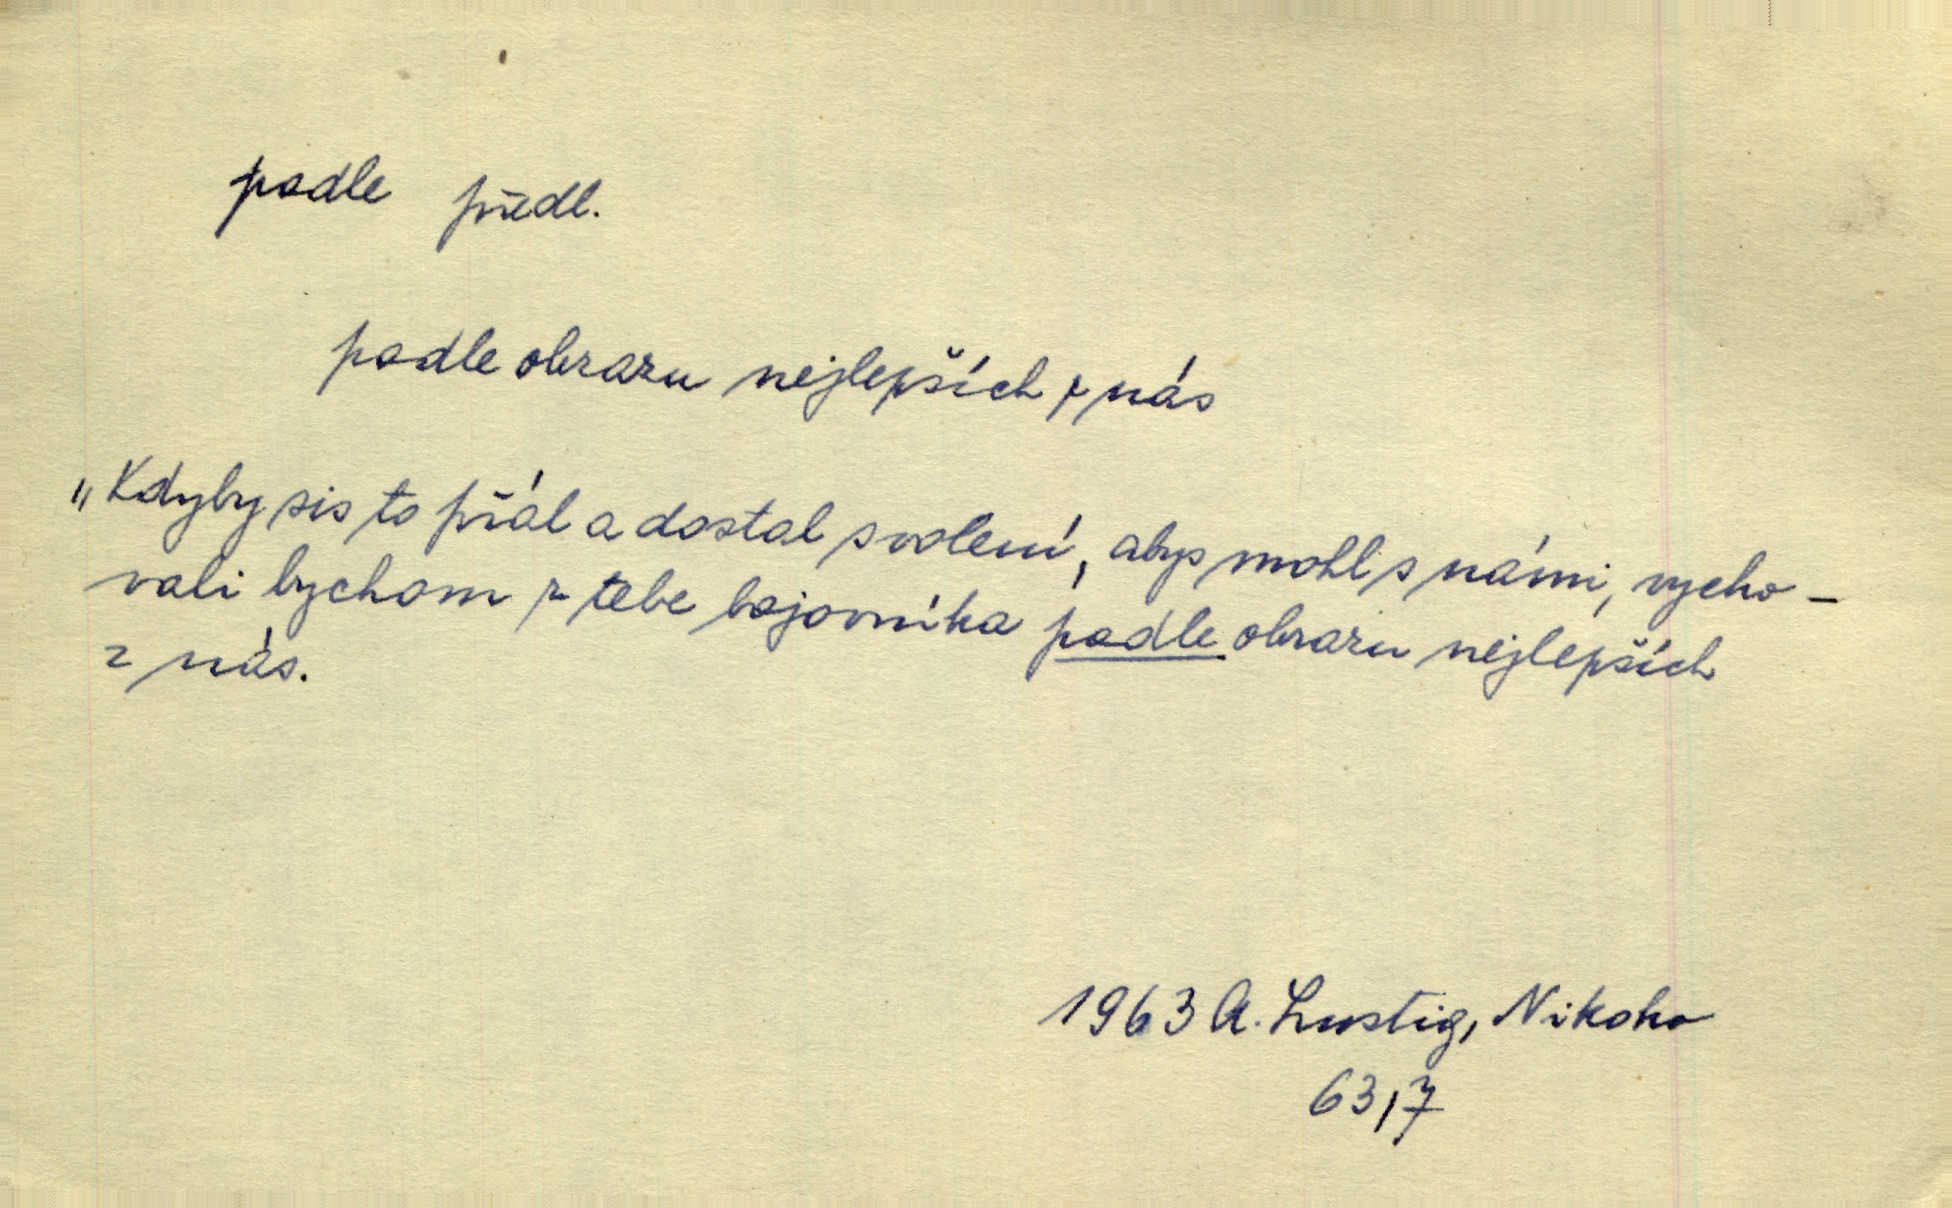 podle předl.
podle obrazu nejlepších z nás
„Kdyby sis to přál a dostal svolení, abys mohl s námi, vycho-
vali bychom z tebe bojovníka podle obrazu nejlepších
z nás.
1963 A. Lustig, Nikoho
63,7